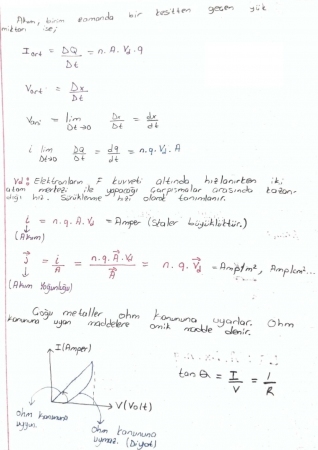 Akım, birim zamanda bir kesitten geçen yük
miktarı ise;
I ort = DQ / Dt = n. A. Vd. q
Vort = Dx / Dt
Vani = lim Dt→0 Dx / Dt = dx / dt
i lim Dt→0 DQ / Dt = dq / dt = n. q. Vd. A
Vd: Elektronların F kuvveti altında hızlanırken iki
atom merkezi ile yapacağı çarpışmalar arasında kazan-
dığı hız. Sürüklenme hızı olarak tanımlanır.
i = n. q. A. Vd = Amper (Skaler büyüklüktür.)
(Akım)
j = i / A = n. q. A. Vd / A = n. q. Vd = Amp/m², Amp/cm²...
(Akım Yoğunluğu)
Çoğu metaller ohm kanununa uyarlar. Ohm
kanununa uyan maddelere omik madde denir.
I (Amper)
tan = I / V = 1 / R
V (Volt)
ohm kanununa
uygun.
ohm kanununa
uymaz. (Diyot)